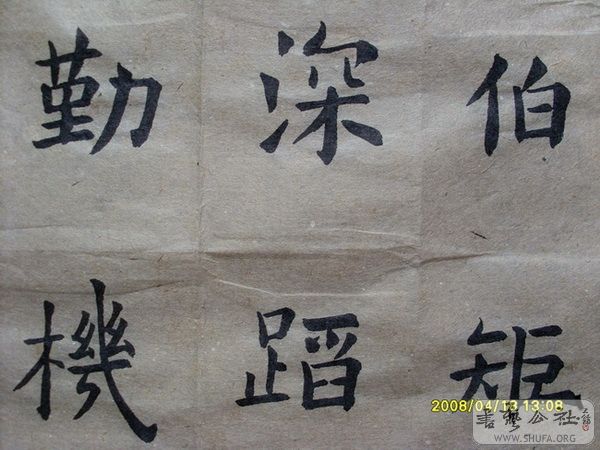 伯矩
深蹈
勤機
2008/04/13 13:08
書藝公社
WWW.SHUFA.ORG